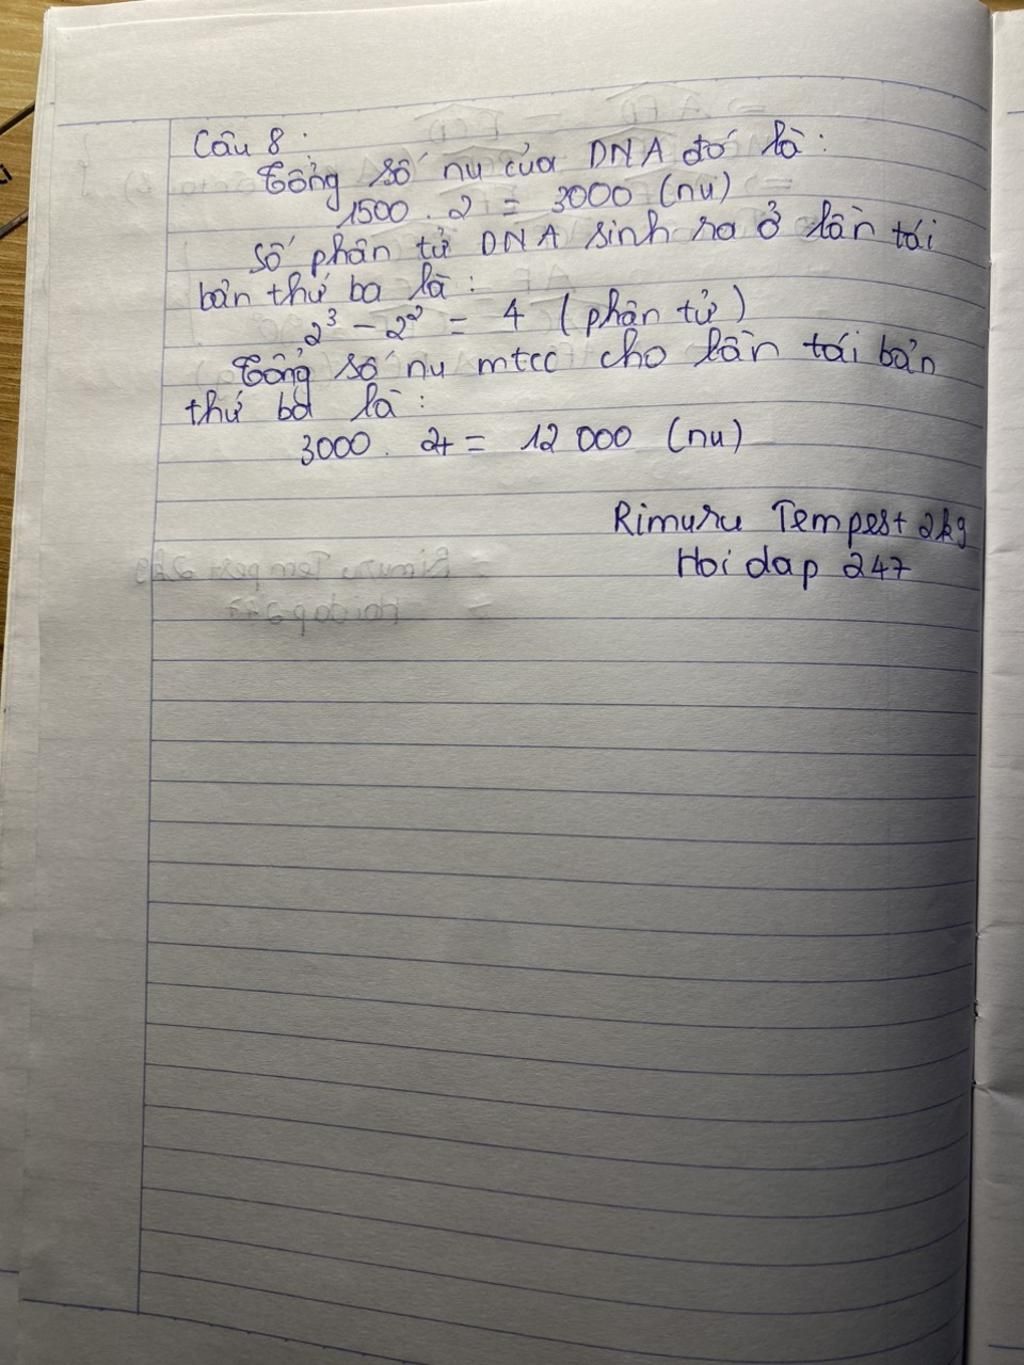 Câu 8:
Tổng số nu của DNA đó là:
1500 . 2 = 3000 (nu)
Số phân tử DNA sinh ra ở lần tái
bản thứ ba là:
2³ - 2² = 4 (phân tử)
Tổng số nu mtcc cho lần tái bản
thứ ba là:
3000 . 4 = 12 000 (nu)
Rimuru Tempest 2kg
Hoi dap 247